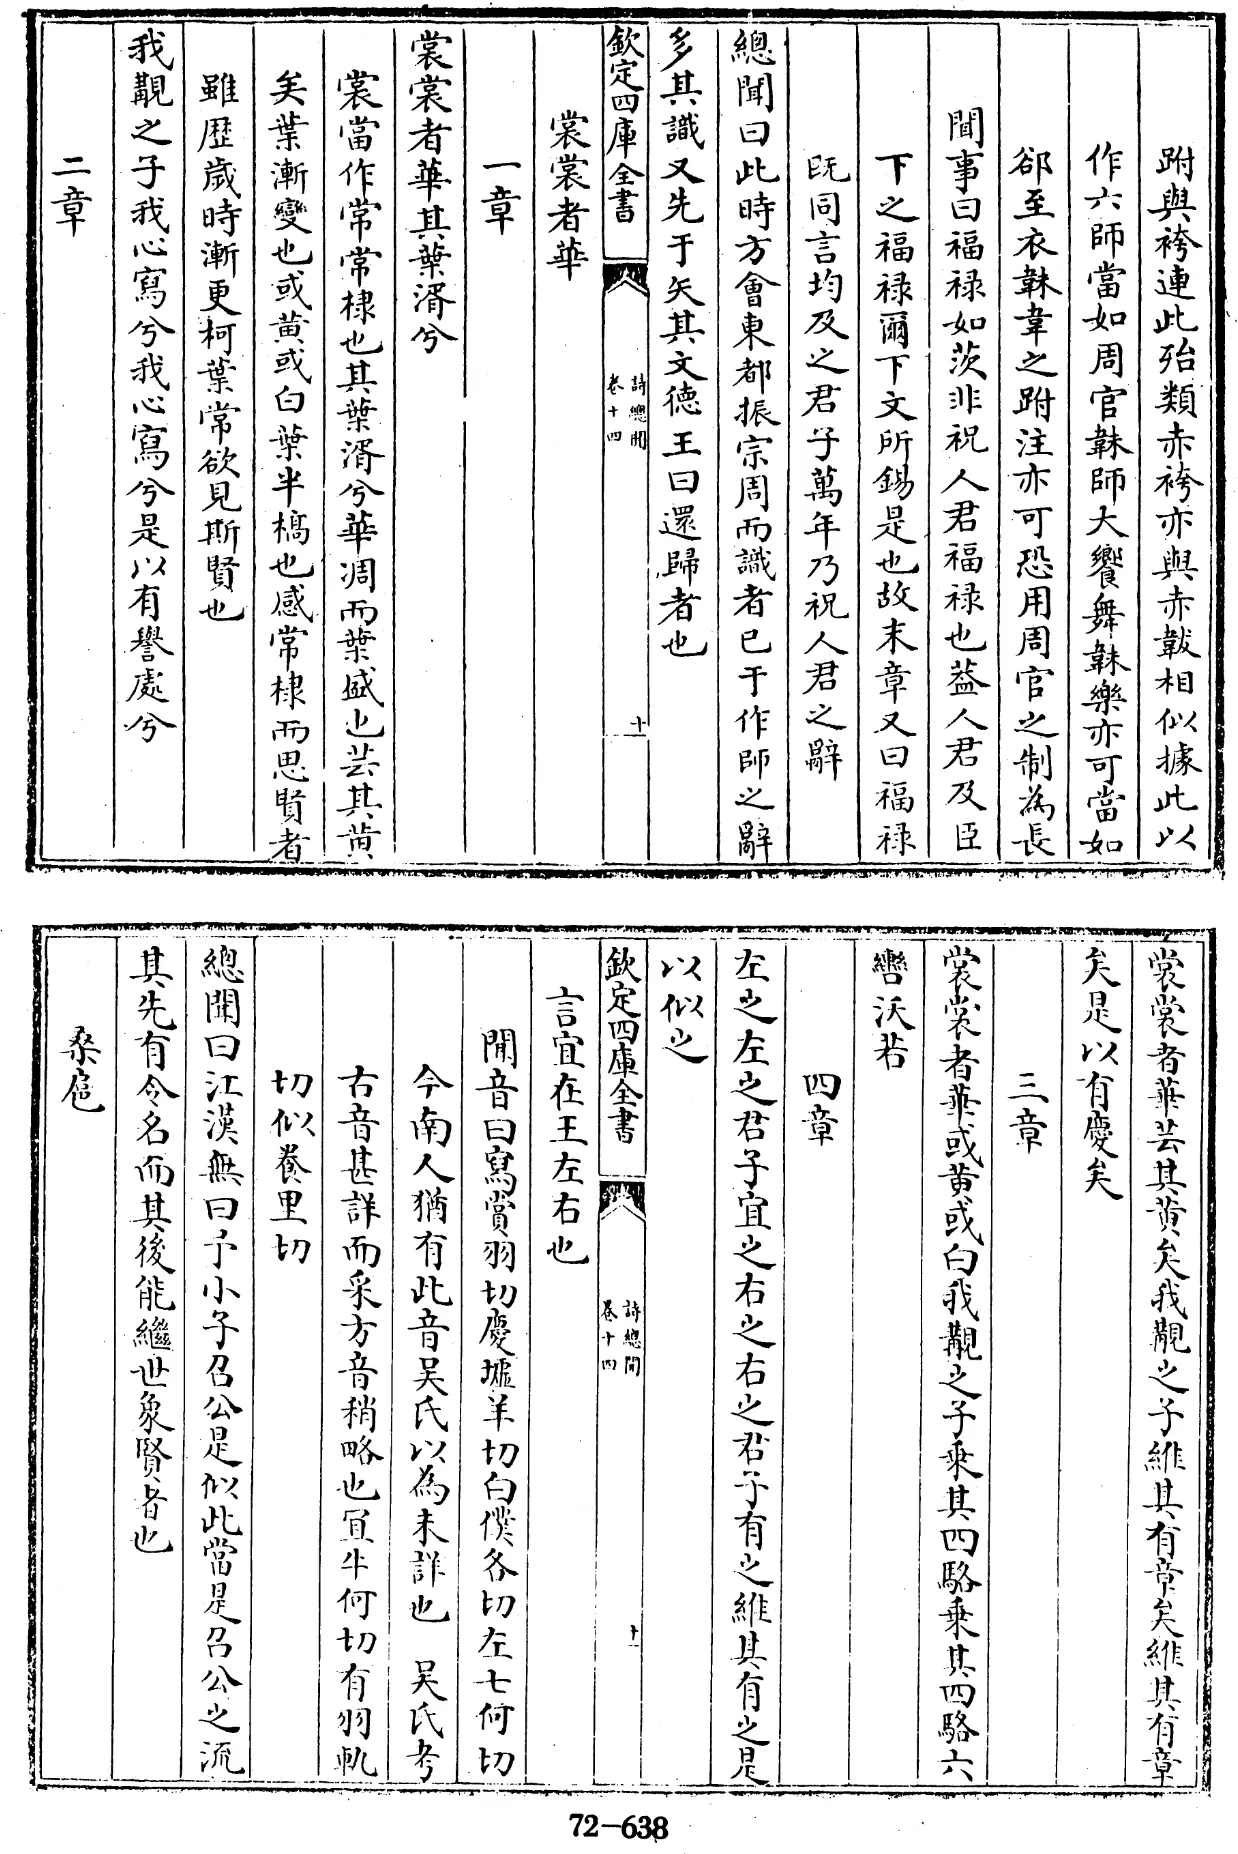 跗與袴連此殆類赤袴亦與赤韍相似據此以
作六師當如周官韎師大饗舞韎樂亦可當如
郤至衣韎韋之跗注亦可恐用周官之制為長
聞事曰福禄如茨非祝人君福禄也葢人君及臣
下之福禄爾下文所錫是也故末章又曰福禄
既同言均及之君子萬年乃祝人君之辭
總聞曰此時方會東都振宗周而識者已于作師之辭
多其識又先于矢其文德王曰還歸者也
欽定四庫全書
詩總聞
卷十四
十
裳裳者華
一章
裳裳者華其葉湑兮
裳當作常常棣也其葉湑兮華凋而葉盛也芸其黄
矣葉漸變也或黄或白葉半槁也感常棣而思賢者
雖歴歳時漸更柯葉常欲見斯賢也
我覯之子我心寫兮我心寫兮是以有譽處兮
二章
裳裳者華芸其黄矣我覯之子維其有章矣維其有章
矣是以有慶矣
三章
裳裳者華或黄或白我覯之子乗其四駱乗其四駱六
轡沃若
四章
左之左之君子宜之右之右之君子有之維其有之是
以似之
欽定四庫全書
詩總聞
卷十四
十一
言宜在王左右也
聞音曰寫賞羽切慶墟羊切白僕各切左七何切
今南人猶有此音吳氏以為未詳也 吳氏考
古音甚詳而采方音稍略也宜牛何切有羽軌
切似養里切
總聞曰江漢無曰予小子召公是似此當是召公之流
其先有令名而其後能繼世象賢者也
桑扈
72-638